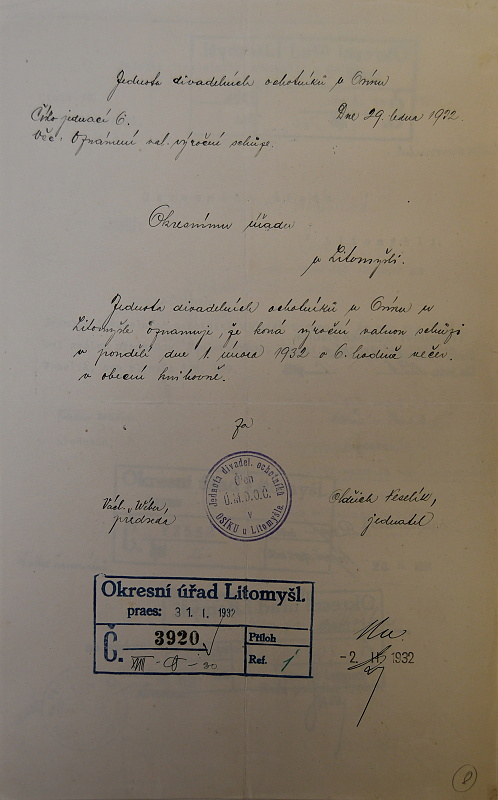 Jednota divadelních ochotníků v Osíku
Číslo jednací 6.
Dne 29. ledna 1932.
Věc: Oznámení val. výroční schůze.
Okresnímu úřadu
v Litomyšli.
Jednota divadelních ochotníků v Osíku u
Litomyšle oznamuje, že koná výroční valnou schůzi
v pondělí dne 1. února 1932 o 6. hodině večer.
v obecní knihovně.
Za
Jednota divadel. ochotníků
Člen
Ú.M.D.O.Č.
v
OSÍKU u Litomyšle.
Václ.
předseda
Oldřich Veselík,
jednatel
Okresní úřad Litomyšl.
praes: 31. I. 1932
Č. 3920
Příloh
VIII - - 30
Ref. 1
-2. II. 1932
8